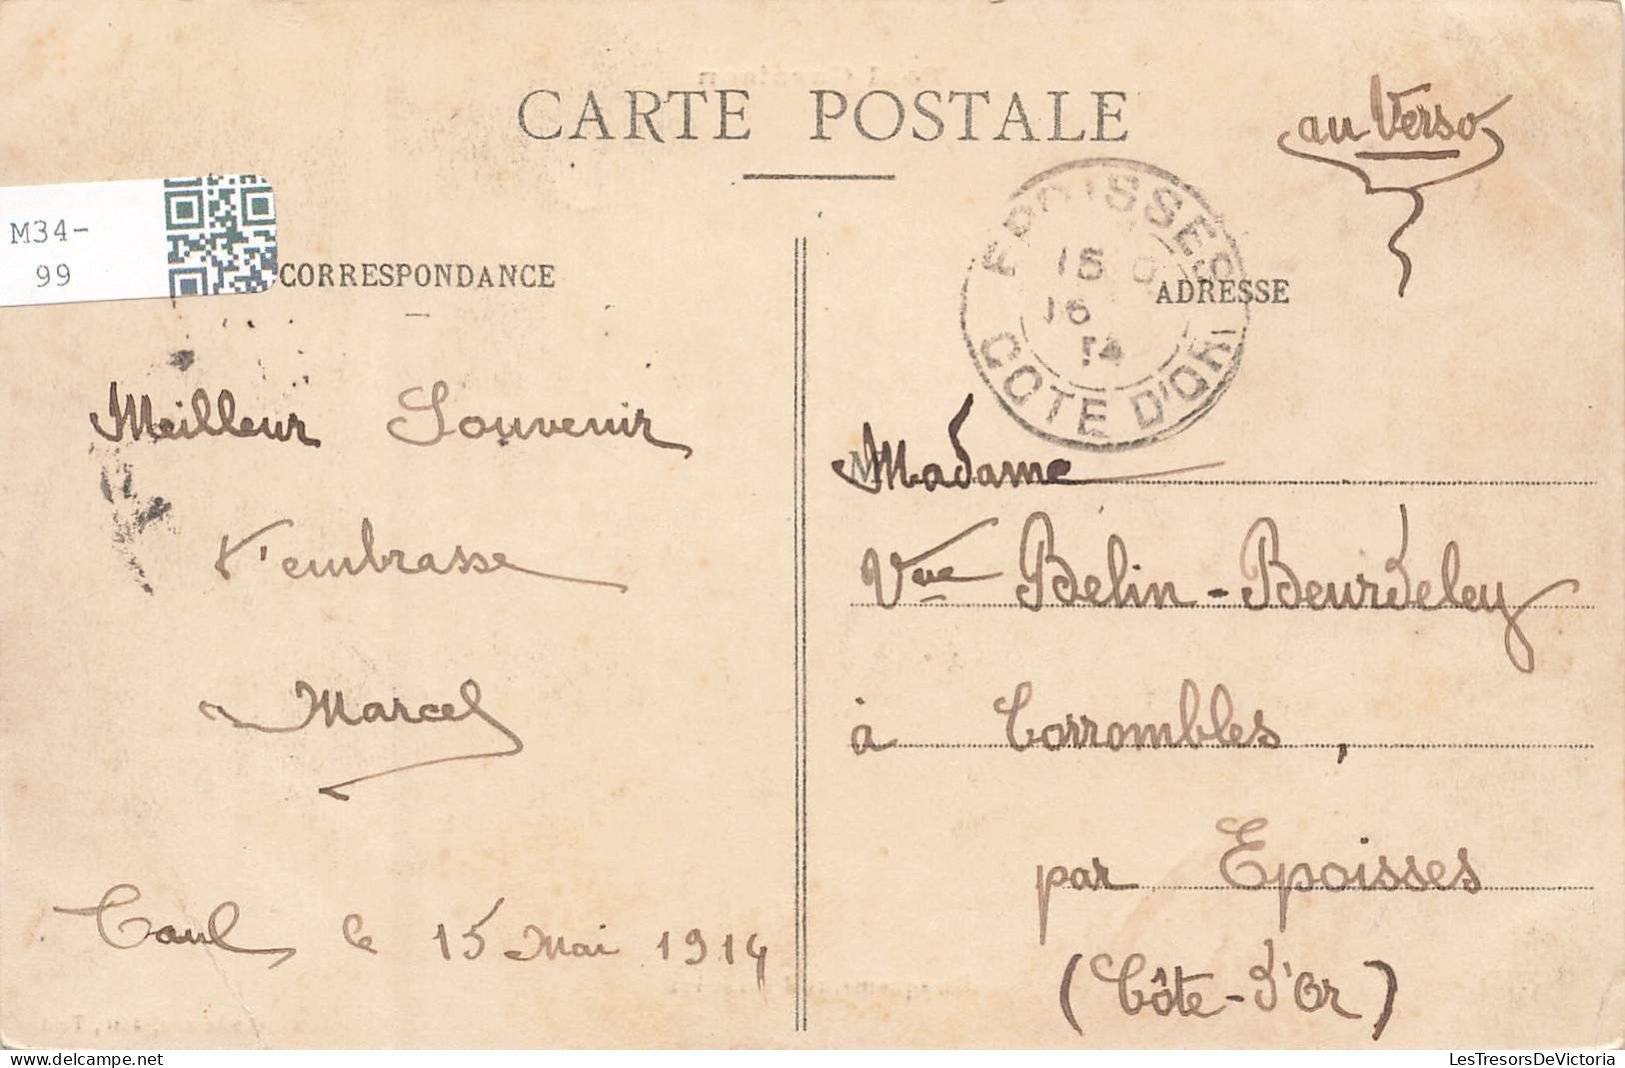 CARTE POSTALE
au Verso
M34-
99
CORRESPONDANCE
EPOISSES
16
14
COTE D'OR
ADRESSE
Meilleur Souvenir
t'embrasse
Marcel
Toul le 15 Mai 1914
Madame
Vve Belin-Beurdeley
à Corrombles,
par Epoisses
(Côte-d'Or)
LesTresorsDeVictoria